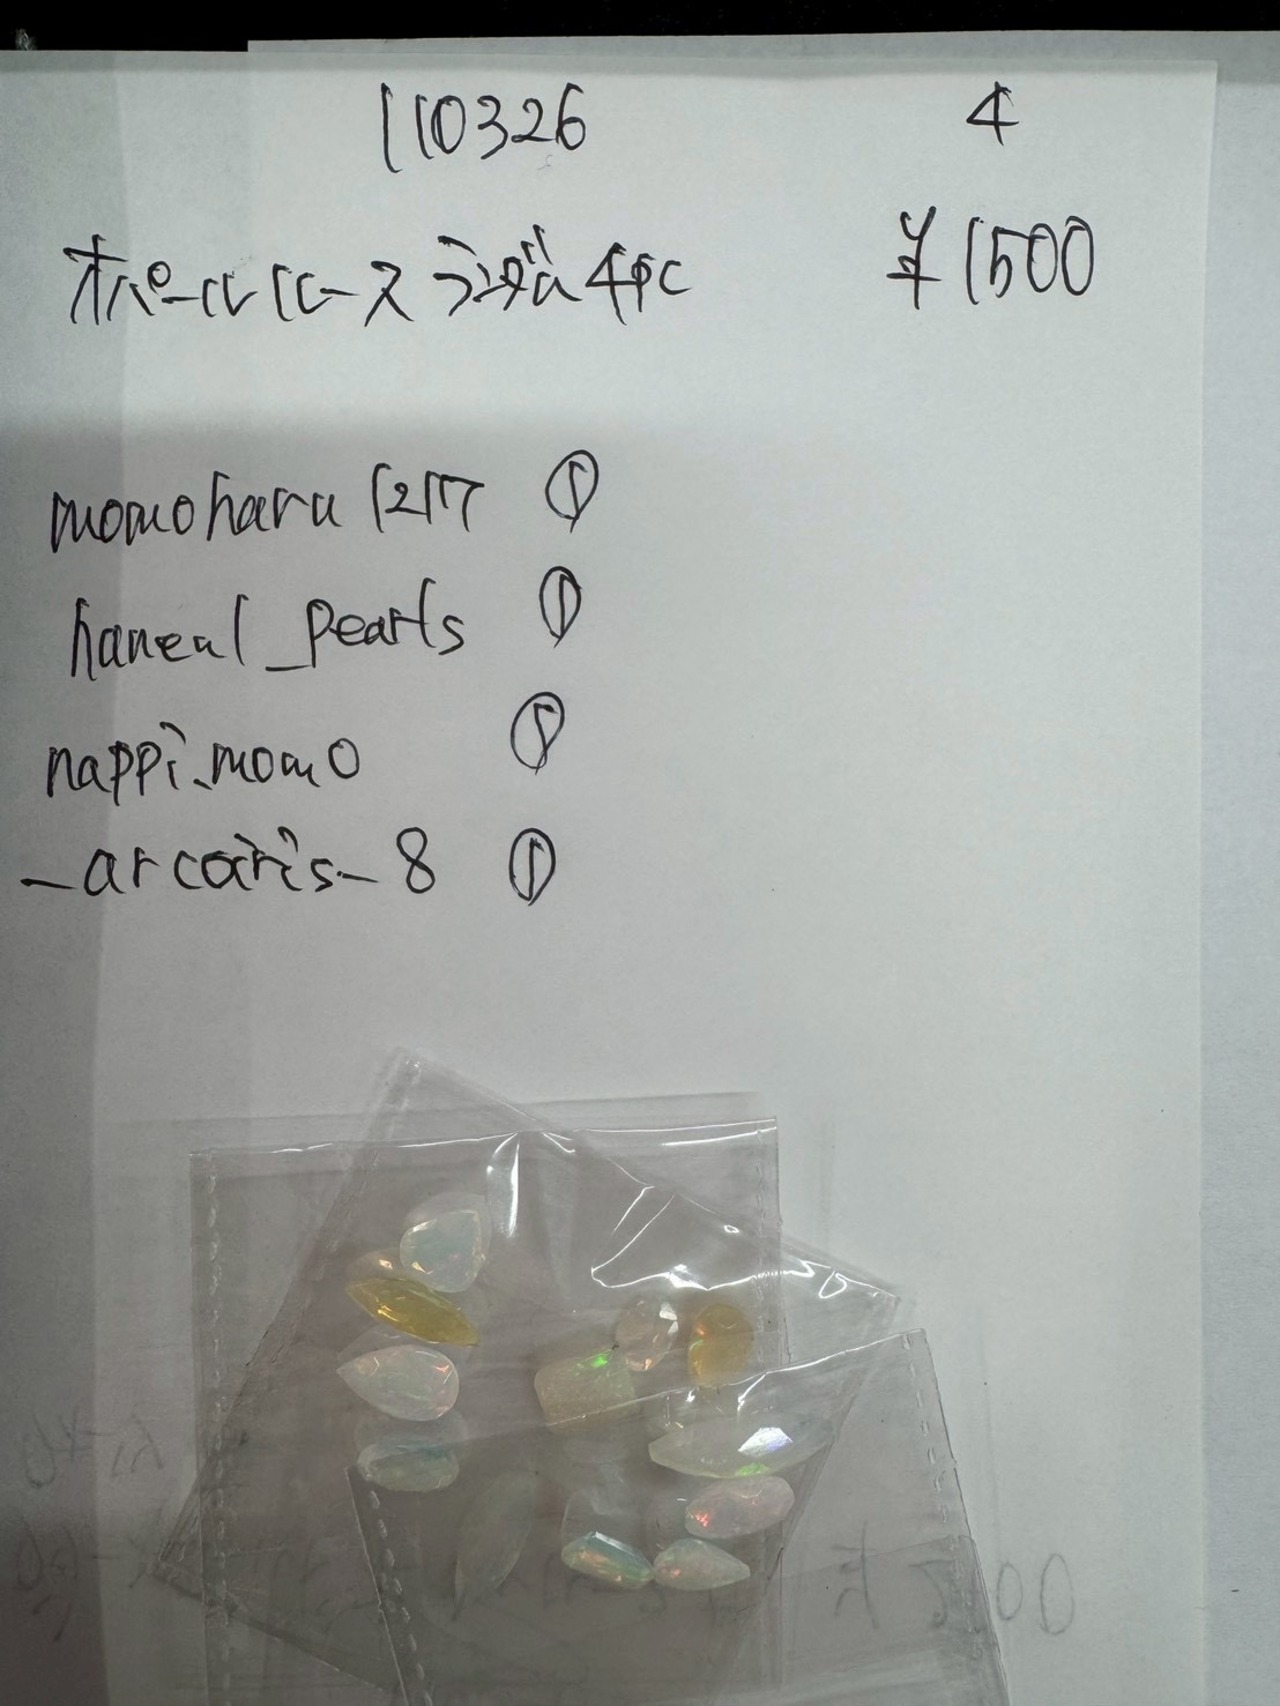 110326 4
オパールルース ランダム 4pc ¥1500
momoharu1217 ①
haneul_pearls ①
nappi.momo ①
_arcaris_8 ①